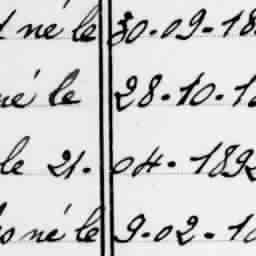 né le 30-09-18
né le 28-10-1
le 21-04-1892
né le 9-02-18